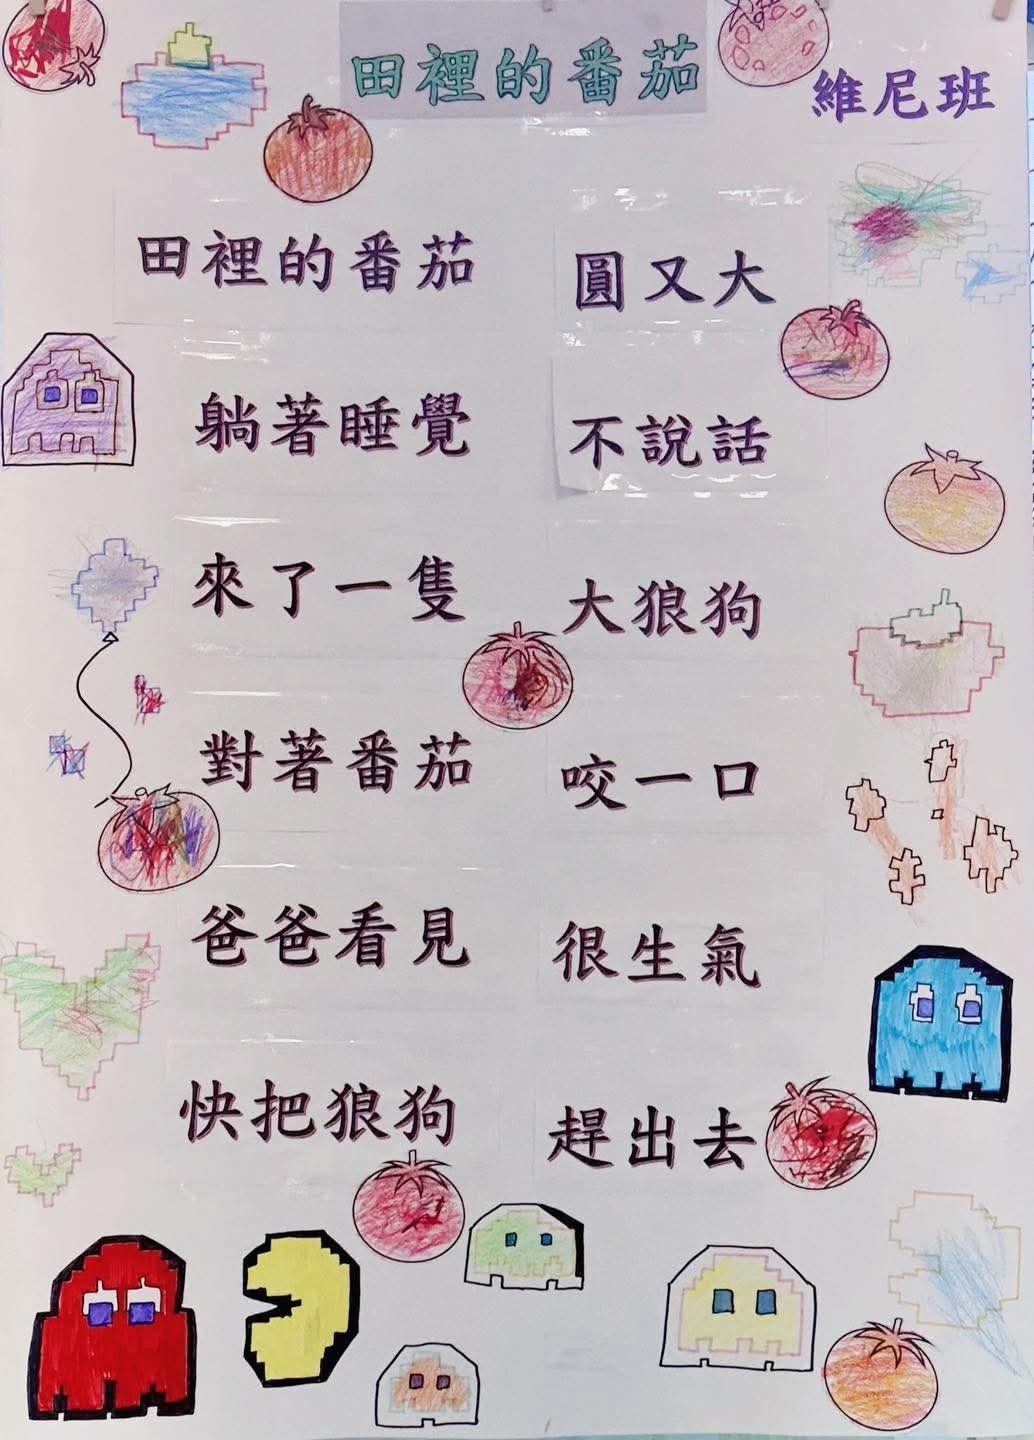 田裡的番茄
維尼班
田裡的番茄 圓又大
躺著睡覺 不說話
來了一隻 大狼狗
對著番茄 咬一口
爸爸看見 很生氣
快把狼狗 趕出去